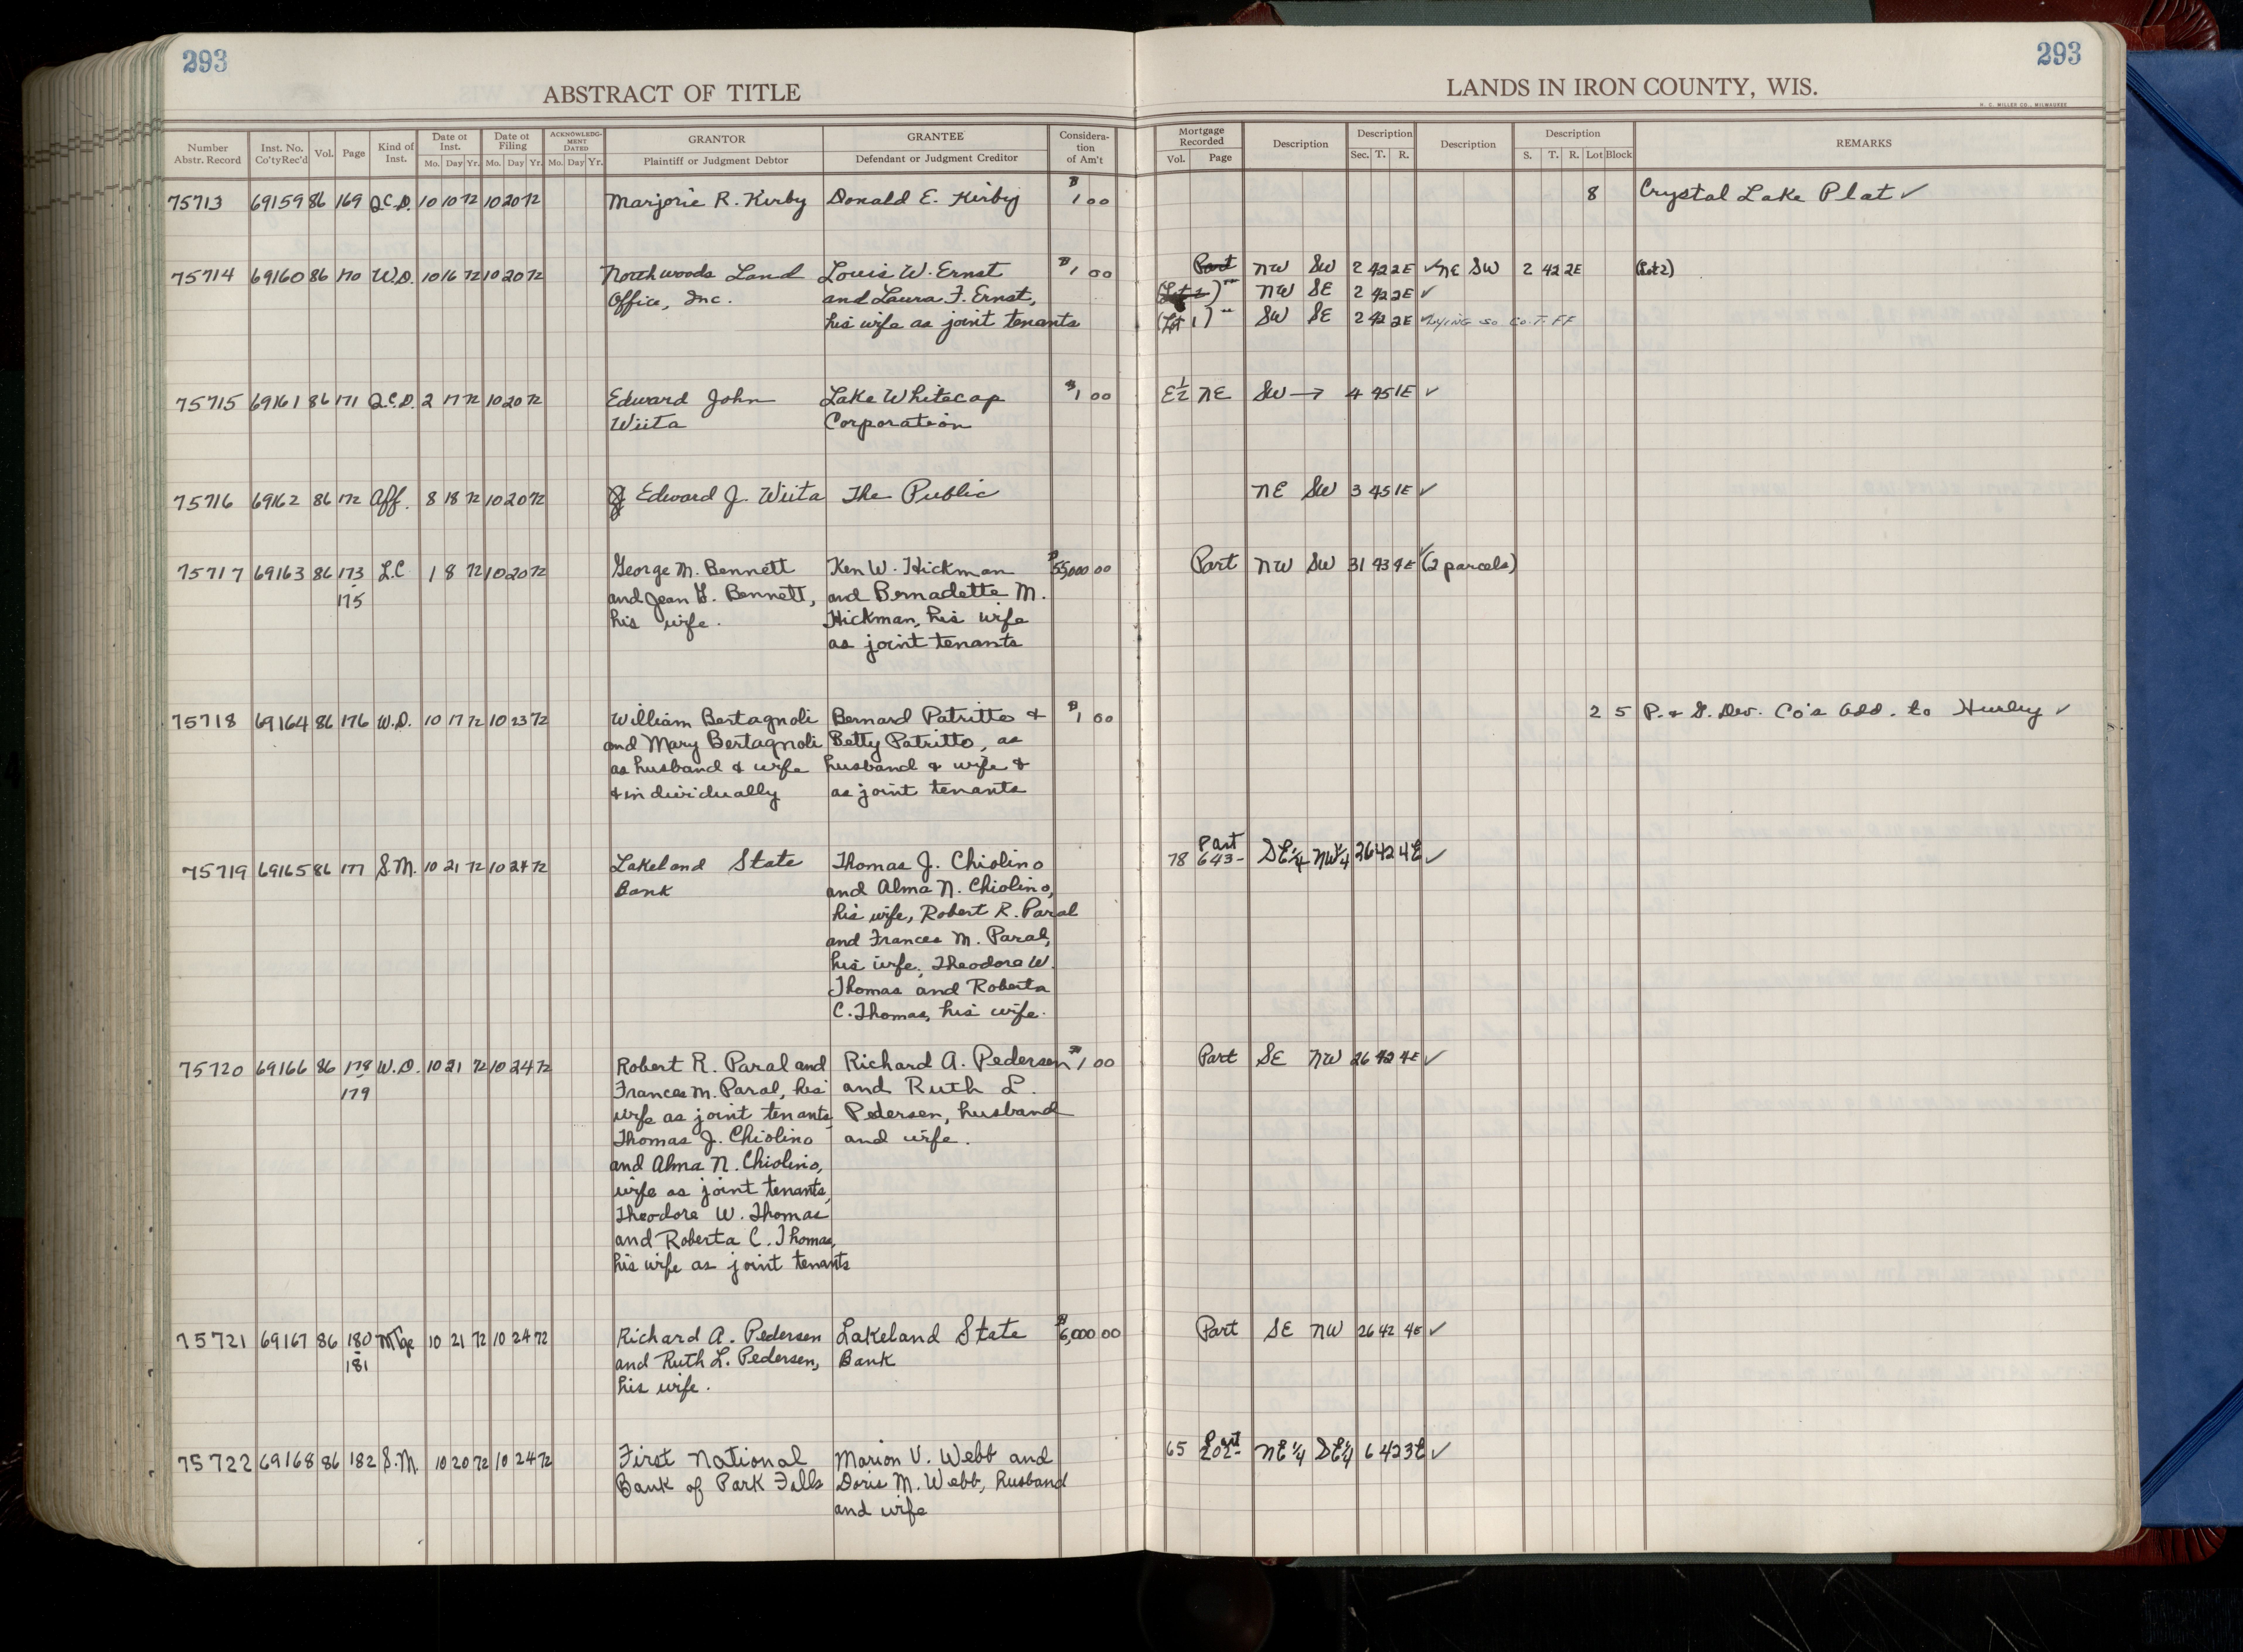 293
293
ABSTRACT OF TITLE
LANDS IN IRON COUNTY, WIS.
H. C. MILLER CO., MILWAUKEE
Number Abstr. Record Inst. No. Co'tyRec'd Vol. Page Kind of Inst. Date of Inst. Mo. Day Yr. Date of Filing Mo. Day Yr. ACKNOWLEDGMENT DATED Mo. Day Yr. GRANTOR Plaintiff or Judgment Debtor GRANTEE Defendant or Judgment Creditor Consideration of Am't Mortgage Recorded Vol. Page Description Description Sec. T. R. Description Description S. T. R. Lot Block REMARKS
75713 69159 86 169 Q.C.D. 10 10 72 10 20 72 Marjorie R. Kirby Donald E. Kirby $1 00 8 Crystal Lake Plat ✓
75714 69160 86 170 W.D. 10 16 72 10 20 72 Northwoods Land Louis W. Ernst $1 00 Part NW SW 2 42 2E ✓ NE SW 2 42 2E (Lot 2)
Office, Inc. and Laura F. Ernst, (Lot 2) " NW SE 2 42 2E ✓
his wife as joint tenants (Lot 1) " SW SE 2 42 2E ✓ Lying so Co. T. FF
75715 69161 86 171 Q.C.D. 2 17 72 10 20 72 Edward John Lake Whitecap $1 00 E½ NE SW → 4 45 1E ✓
Wiita Corporation
75716 69162 86 172 Aff. 8 18 72 10 20 72 Edward J. Wiita The Public NE SW 3 45 1E ✓
75717 69163 86 173 L.C 1 8 72 10 20 72 George M. Bennett Ken W. Hickman $55,000 00 Part NW SW 31 43 4E ✓ (2 parcels)
175 and Jean G. Bennett, and Bernadette M.
his wife. Hickman, his wife
as joint tenants
75718 69164 86 176 W.D. 10 17 72 10 23 72 William Bertagnoli Bernard Patritto & $1 00 2 5 P. & G. Dev. Co's Add. to Hurley ✓
and Mary Bertagnoli Betty Patritto, as
as husband & wife husband & wife &
& individually as joint tenants
75719 69165 86 177 S.M. 10 21 72 10 24 72 Lakeland State Thomas J. Chiolino 78 Part 643- SE¼ NW¼ 26 42 4E ✓
Bank and Alma N. Chiolino,
his wife, Robert R. Paral
and Frances M. Paral,
his wife, Theodore W.
Thomas and Roberta
C. Thomas, his wife.
75720 69166 86 178 W.D. 10 21 72 10 24 72 Robert R. Paral and Richard A. Pedersen $1 00 Part SE NW 26 42 4E ✓
179 Frances M. Paral, his and Ruth L.
wife as joint tenants, Pedersen, husband
Thomas J. Chiolino and wife.
and Alma N. Chiolino,
wife as joint tenants,
Theodore W. Thomas
and Roberta C. Thomas,
his wife as joint tenants
75721 69167 86 180 Mtge 10 21 72 10 24 72 Richard A. Pedersen Lakeland State $6,000 00 Part SE NW 26 42 4E ✓
181 and Ruth L. Pedersen, Bank
his wife.
75722 69168 86 182 S.M. 10 20 72 10 24 72 First National Marion V. Webb and 65 Part 202- NE¼ SE¼ 6 42 3E ✓
Bank of Park Falls Doris M. Webb, husband
and wife